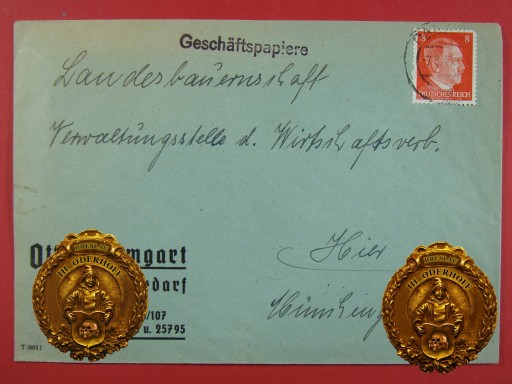 Geschäftspapiere
8 8
DEUTSCHES REICH
Landesbauernschaft
Verwaltungsstelle d. Wirtschaftsverb.
Hier
gart
edarf
/107
u. 25795
BRESLAU
IH-ODERHOFF
BRESLAU
IH-ODERHOFF